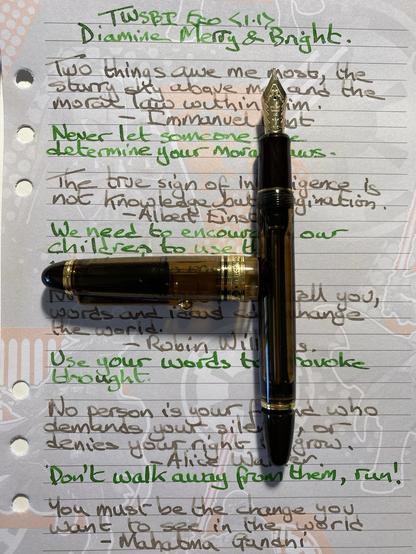 TWSBI Eco <1.1>
Diamine Merry & Bright.
Two things awe me most, the
starry sky above me and the
moral law within
- Immanuel
Never let someone
determine your
The true sign of Intelligence is
not knowledge but imagination.
-Albert
We need to encourage our
children to use
you,
words and change
the world.
- Robin
Use your words to provoke
thought.
No person is your friend who
demands your silence, or
denies your right grow.
- Alice Walker
Don't walk away from them, run!
You must be the change you
want to see in the world
- Mahatma Gandhi